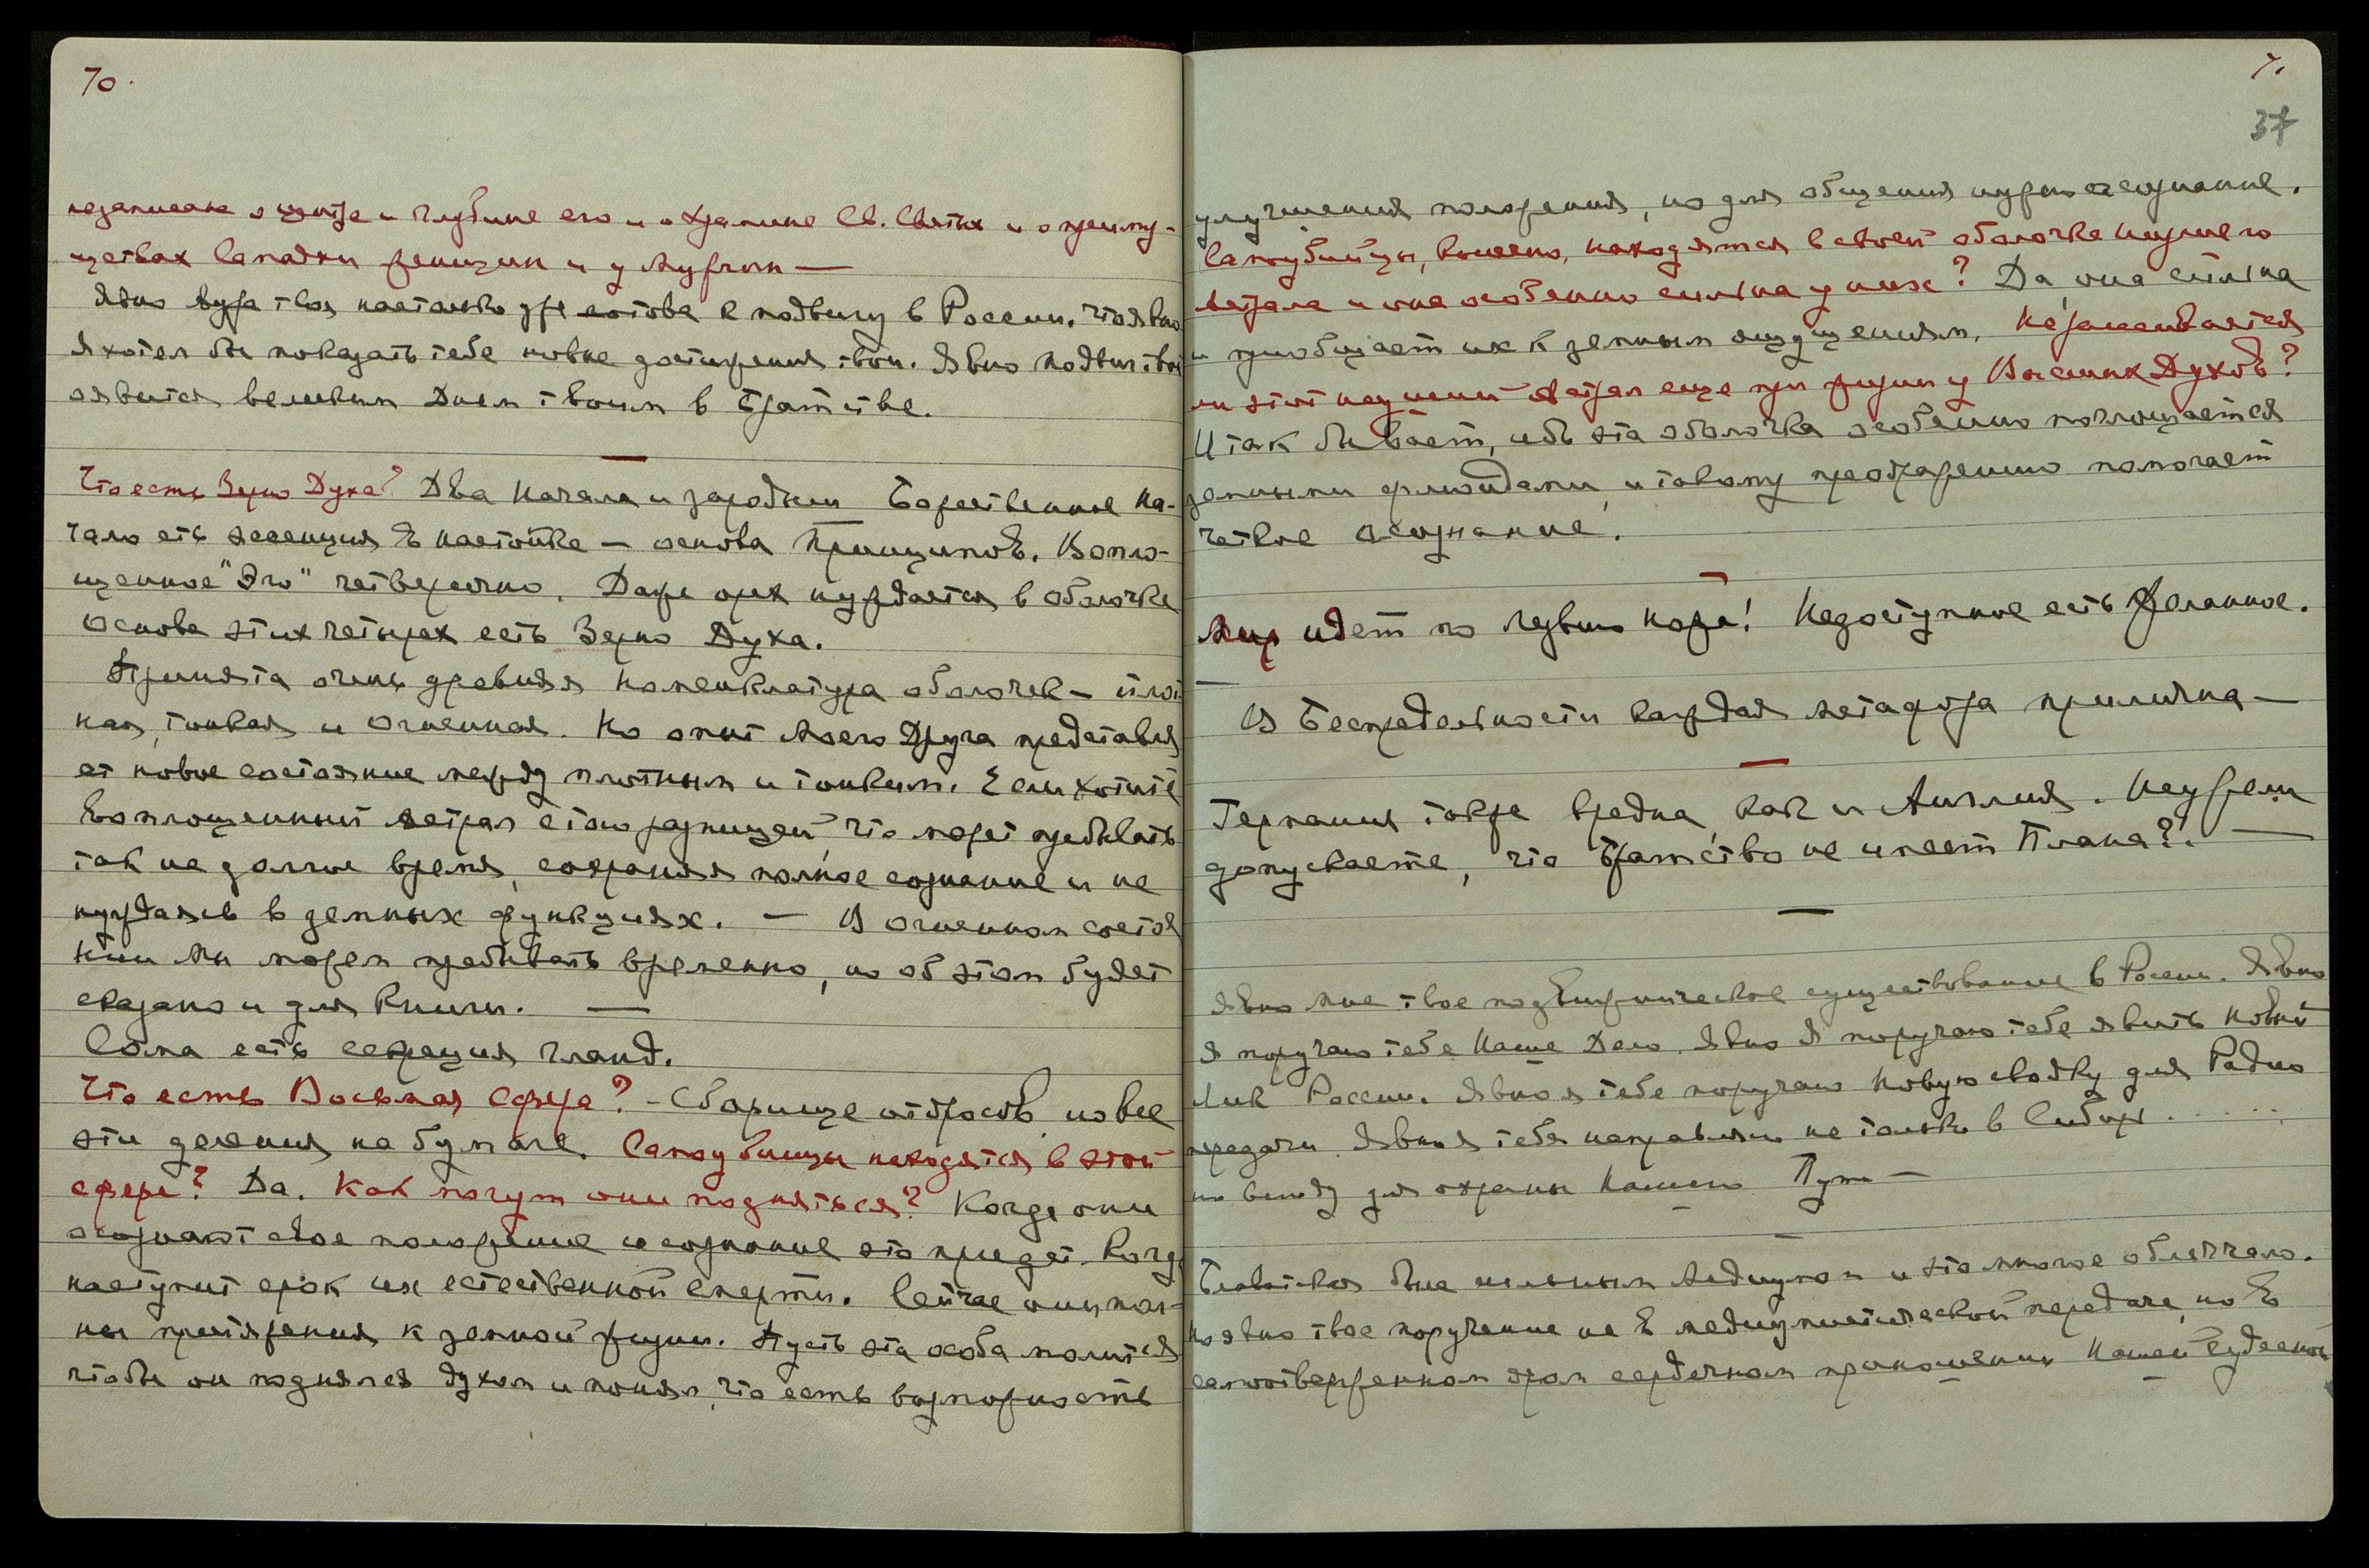 70.
незаписана о центре и глубине его и о храмине Св. Святых и о преиму-
ществах женщин и у мужчин —
Явно Аура твоя настолько уже готова к подвигу в России. что явно
Я хотел бы показать тебе новые достижения твои. Явно подвиг твой
явится великим Днем твоим в Братстве.
Что есть Зерно Духа? Два Начала и зародыш Божественное На-
чало есть эссенция Ъ настойке — основа Принципов. Вопло-
щенное "Эго" четверично. Даже орех нуждается в оболочке
Основа этих четырех есть Зерно Духа.
Принята очень древняя номенклатура оболочек — плот
ная, тонкая и Огненная. Но опыт Моего Друга представля
ет новое состояние между плотным и тонким. Если хотите
воплощенный Астрал с тою разницей, что может пребывать
так не долгое время, сохраняя полное сознание и не
нуждаясь в земных функциях. — В Огненном состоя
нии Мы можем пребывать временно, но об этом будет
сказано и для Книги. —
Сома есть секреция гланд.
Что есть Восьмая Сфера? - Сборище отбросов, но все
эти деления на бумаге. Самоубийцы находятся в этой
сфере? Да. Как могут они подняться? Когда они
осознают свое положение и осознание это придет. Когда
наступит срок их естественной смерти. Сейчас они пол-
ны притяжения к земной жизни. Пусть эта особа молится
чтобы он поднялся духом и понял, что есть возможность
71
37
улучшения положения, но для общения нужно осознание.
Самоубийцы, конечно, находятся в своей оболочке низшего
Астрала и она особенно сильна у них? Да, она сильна
и приобщает их к земным ощущениям. Не изменяется
ли этот низший Астрал еще при жизни у Высших Духов?
И так бывает, ибо эта оболочка особенно поглощается
земными флюидами, и такому преображению помогает
четкое осознание.
Мир идет по лезвию ножа! Недоступное есть Желанное.
В Беспредельности каждая метафора прилична —
Германия также вредна, как и Англия. Неужели
допускаете, что Братство не имеет Плана?. —
Явно мне твое подвижническое существование в России. Явно
Я поручаю тебе Наше Дело. Явно Я поручаю тебе явить Новый
Лик России. Явно я тебе поручаю Новую сводку для Радио
передачи. Явно я тебя направляю не только в Сибирь . . . . . .
но всюду для охраны Нашего Пути —
Блаватская была сильным Медиумом и это многое облегчало.
Но явно твое поручение не Ъ медиумистической передаче, но Ъ
самоотверженном этом сердечном приношении Нашей Чудесной